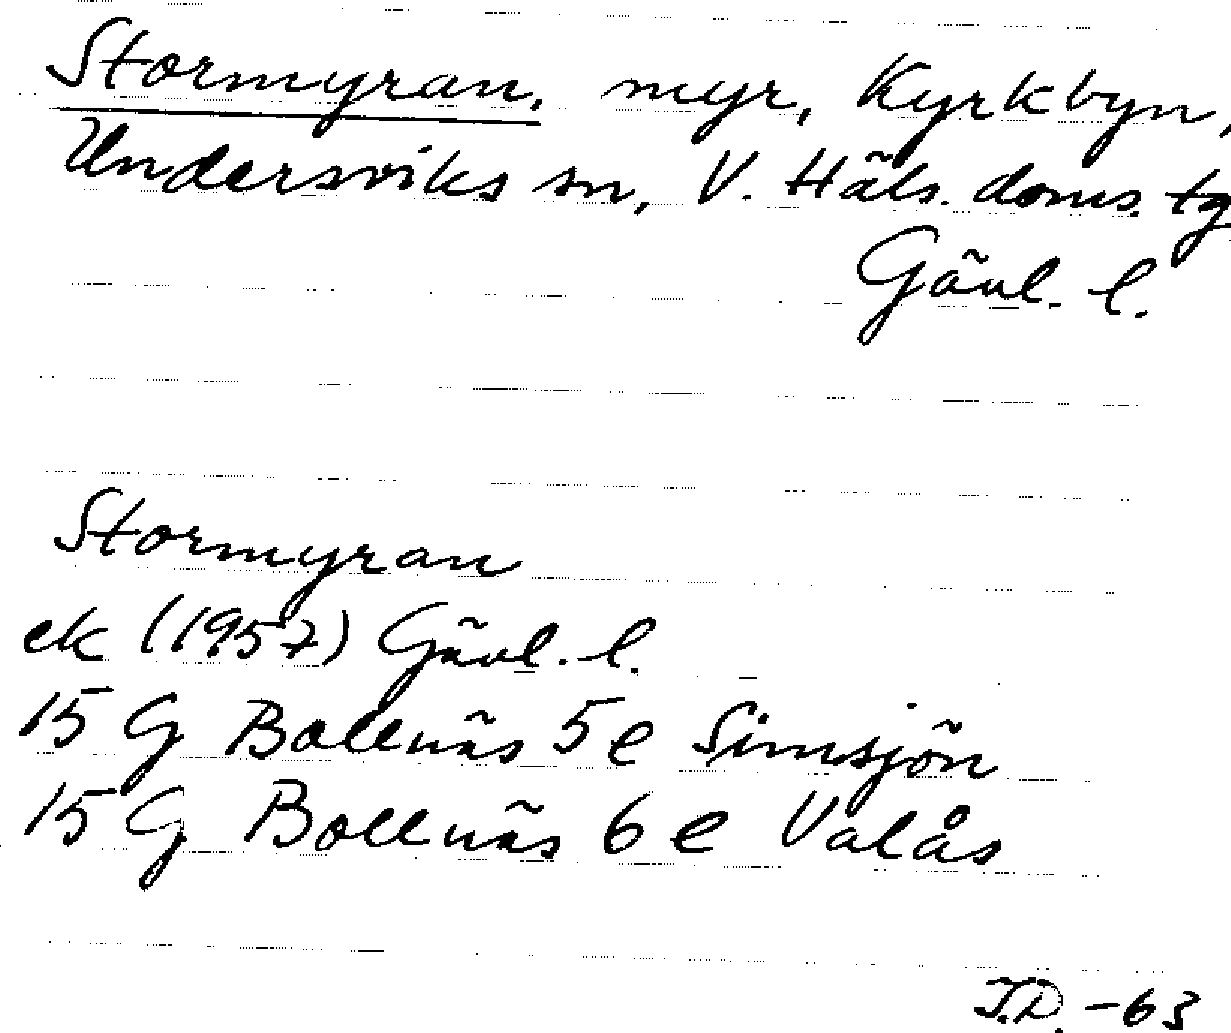 Stormyran, myr, Kyrkbyn,
Undersviks sn, V. Häls. doms. tg
Gävl. l.
Stormyran
ek (1957) Gävl. l.
15 G Bollnäs 5 e Simsjön
15 G Bollnäs 6 e Valås
I.D. -63